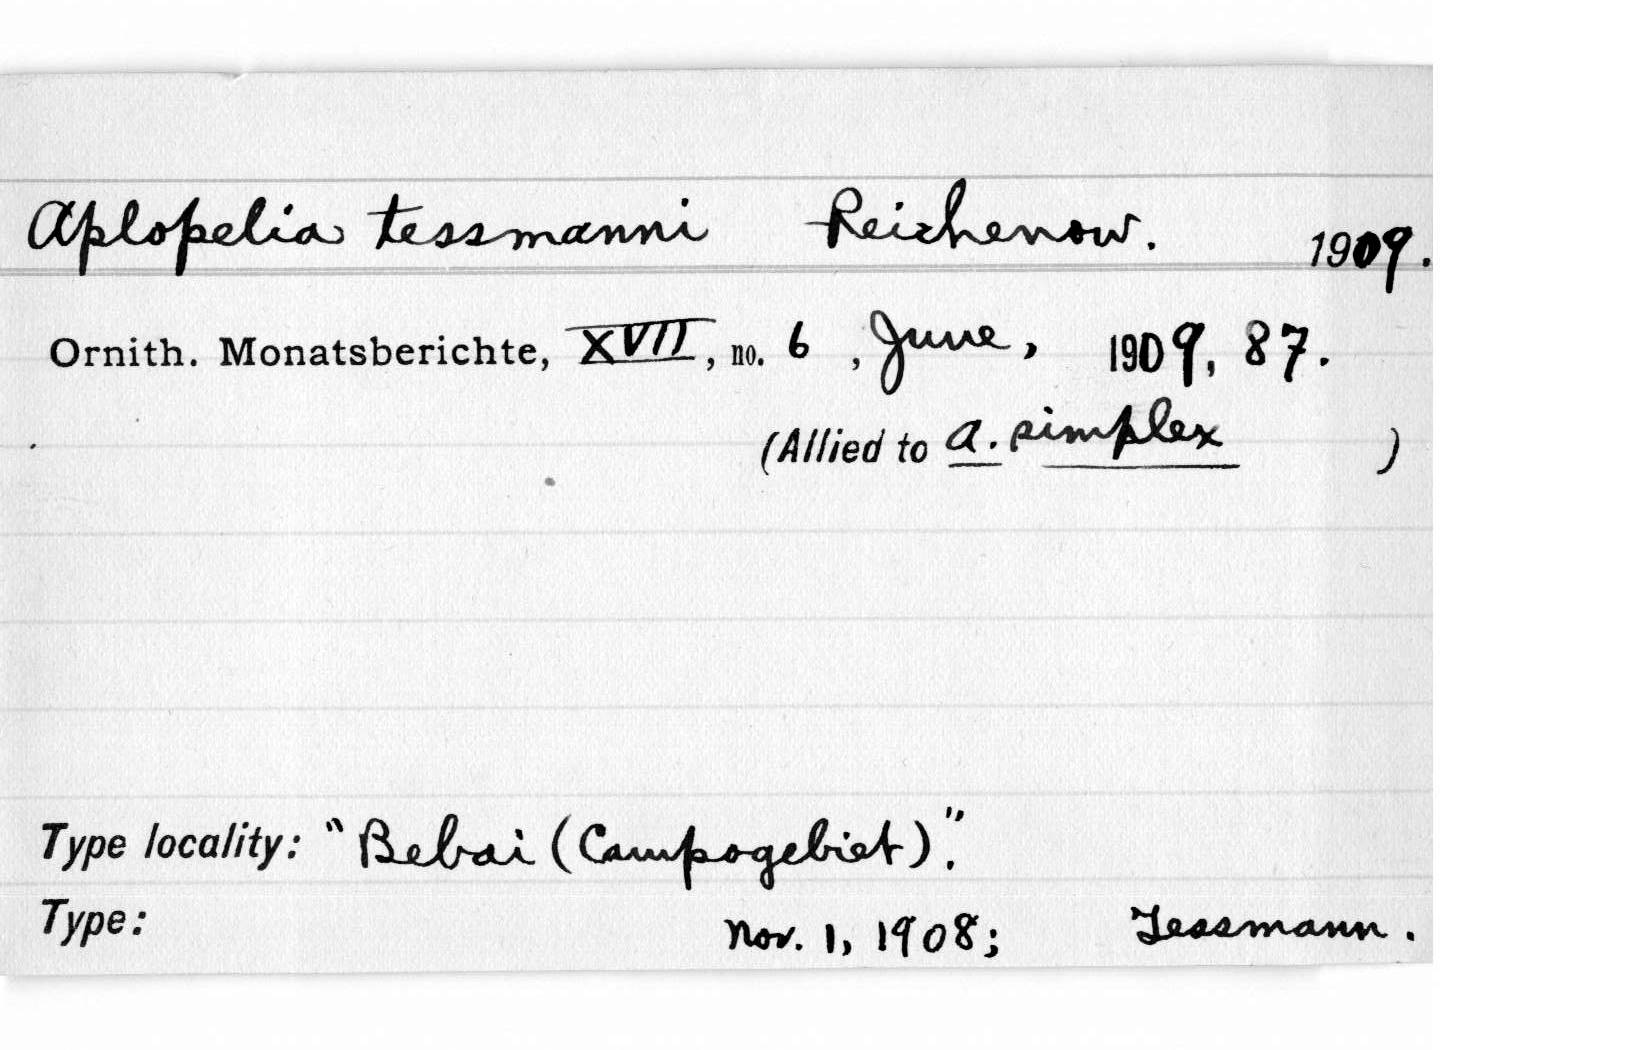 Aplopelia tessmanni Reichenow. 1909.
Ornith. Monatsberichte, XVII, no. 6, June, 1909, 87.
(Allied to A. simplex )
Type locality: "Bebai (Campogebiet)".
Type: Nov. 1, 1908; Tessmann.